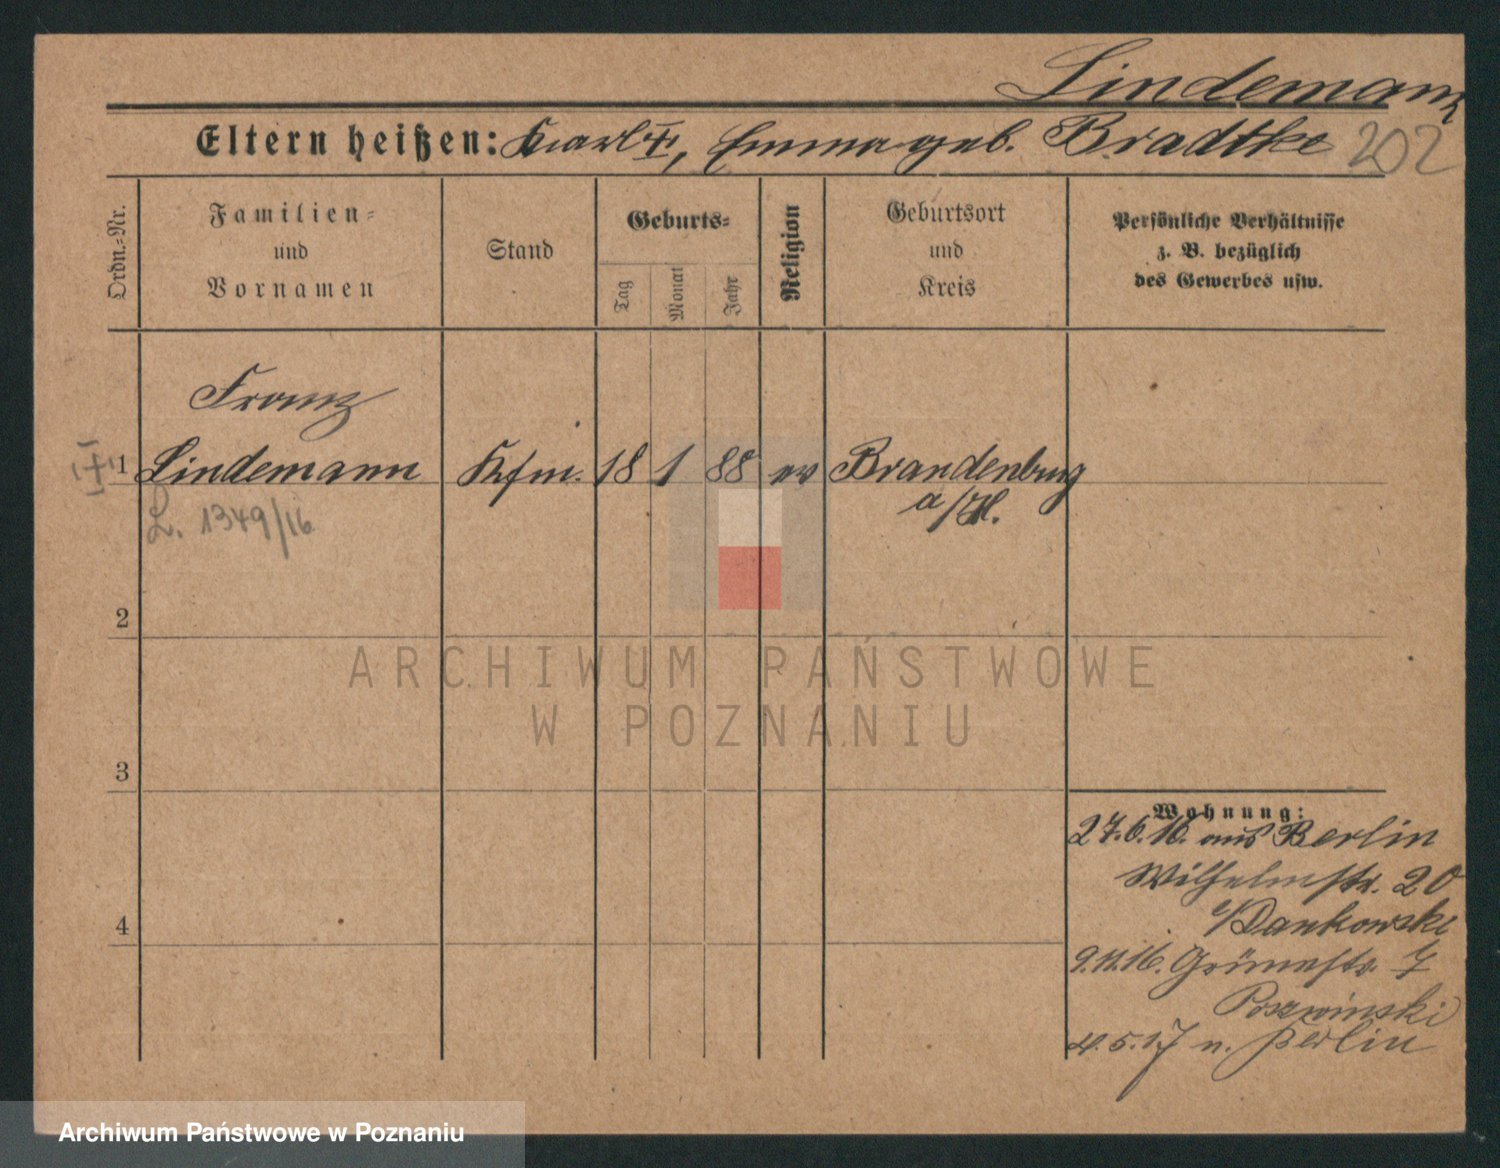 Lindemann
Eltern heißen: Karl †, Emma geb. Bradtke 202
Ordn.-Nr.
Familien-
und
Vornamen
Stand
Geburts-
Tag
Monat
Jahr
Religion
Geburtsort
und
Kreis
Persönliche Verhältnisse
z. B. bezüglich
des Gewerbes usw.
Franz
1 Lindemann Kfm. 18 1 88 ev Brandenburg
a/H.
L. 1349/16
2
ARCHIWUM PAŃSTWOWE
W POZNANIU
3
Wohnung:
27.6.16. aus Berlin
Wilhelmstr. 20
b/Dankowski
4
9.11.16. Grünestr. 7
Poszwinski
4.5.17 n. Berlin
Archiwum Państwowe w Poznaniu